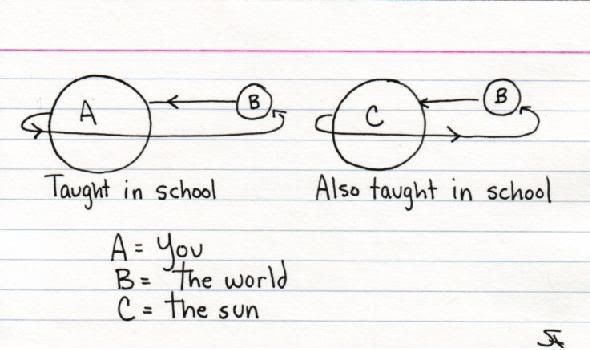 A B C B
Taught in school Also taught in school
A = You
B = the world
C = the sun